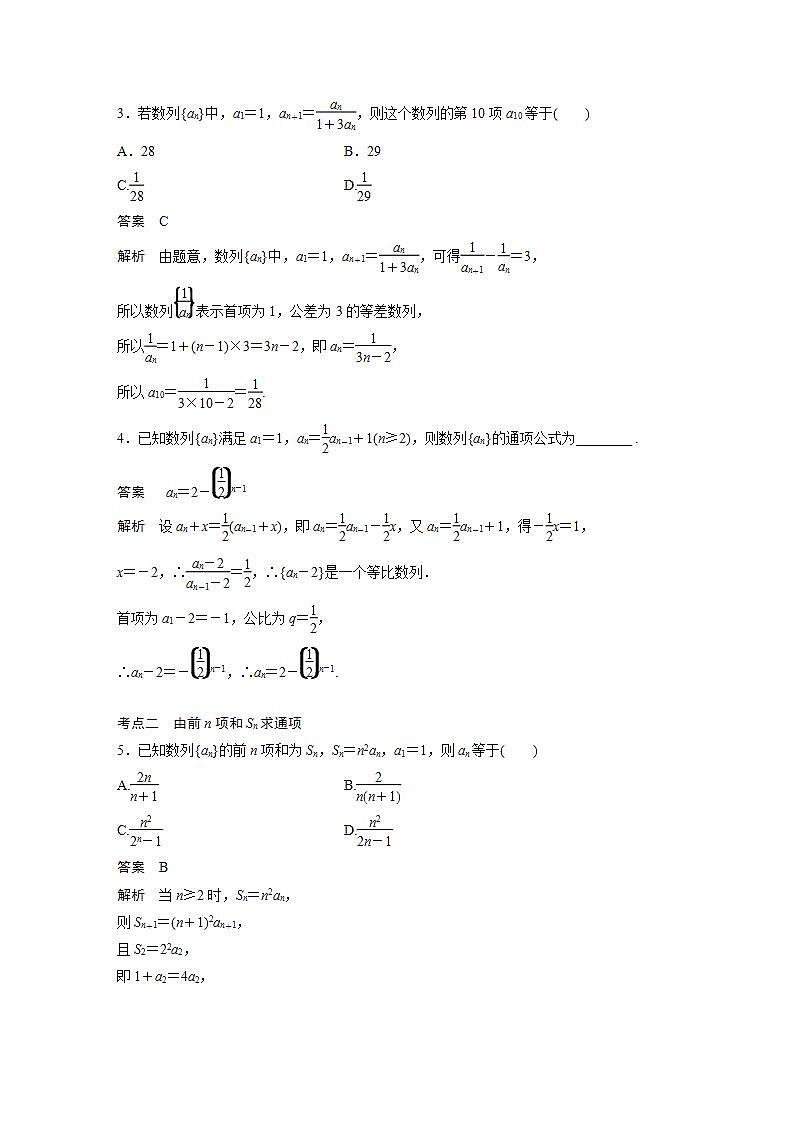 3．若数列{aₙ}中，a₁＝1，aₙ₊₁＝aₙ/(1＋3aₙ)，则这个数列的第10项a₁₀等于(　　)
A．28　　B．29
C.1/28　　D.1/29
答案　C
解析　由题意，数列{aₙ}中，a₁＝1，aₙ₊₁＝aₙ/(1＋3aₙ)，可得1/aₙ₊₁－1/aₙ＝3，
所以数列{1/aₙ}表示首项为1，公差为3的等差数列，
所以1/aₙ＝1＋(n－1)×3＝3n－2，即aₙ＝1/(3n－2)，
所以a₁₀＝1/(3×10－2)＝1/28.
4．已知数列{aₙ}满足a₁＝1，aₙ＝1/2aₙ₋₁＋1(n≥2)，则数列{aₙ}的通项公式为________．
答案　aₙ＝2－(1/2)ⁿ⁻¹
解析　设aₙ＋x＝1/2(aₙ₋₁＋x)，即aₙ＝1/2aₙ₋₁－1/2x，又aₙ＝1/2aₙ₋₁＋1，得－1/2x＝1，
x＝－2，∴(aₙ－2)/(aₙ₋₁－2)＝1/2，∴{aₙ－2}是一个等比数列．
首项为a₁－2＝－1，公比为q＝1/2，
∴aₙ－2＝－(1/2)ⁿ⁻¹，∴aₙ＝2－(1/2)ⁿ⁻¹.
考点二　由前n项和Sₙ求通项
5．已知数列{aₙ}的前n项和为Sₙ，Sₙ＝n²aₙ，a₁＝1，则aₙ等于(　　)
A.2n/(n＋1)　　B.2/(n(n＋1))
C.n²/(2ⁿ－1)　　D.n²/(2n－1)
答案　B
解析　当n≥2时，Sₙ＝n²aₙ，
则Sₙ₊₁＝(n＋1)²aₙ₊₁，
且S₂＝2²a₂，
即1＋a₂＝4a₂，